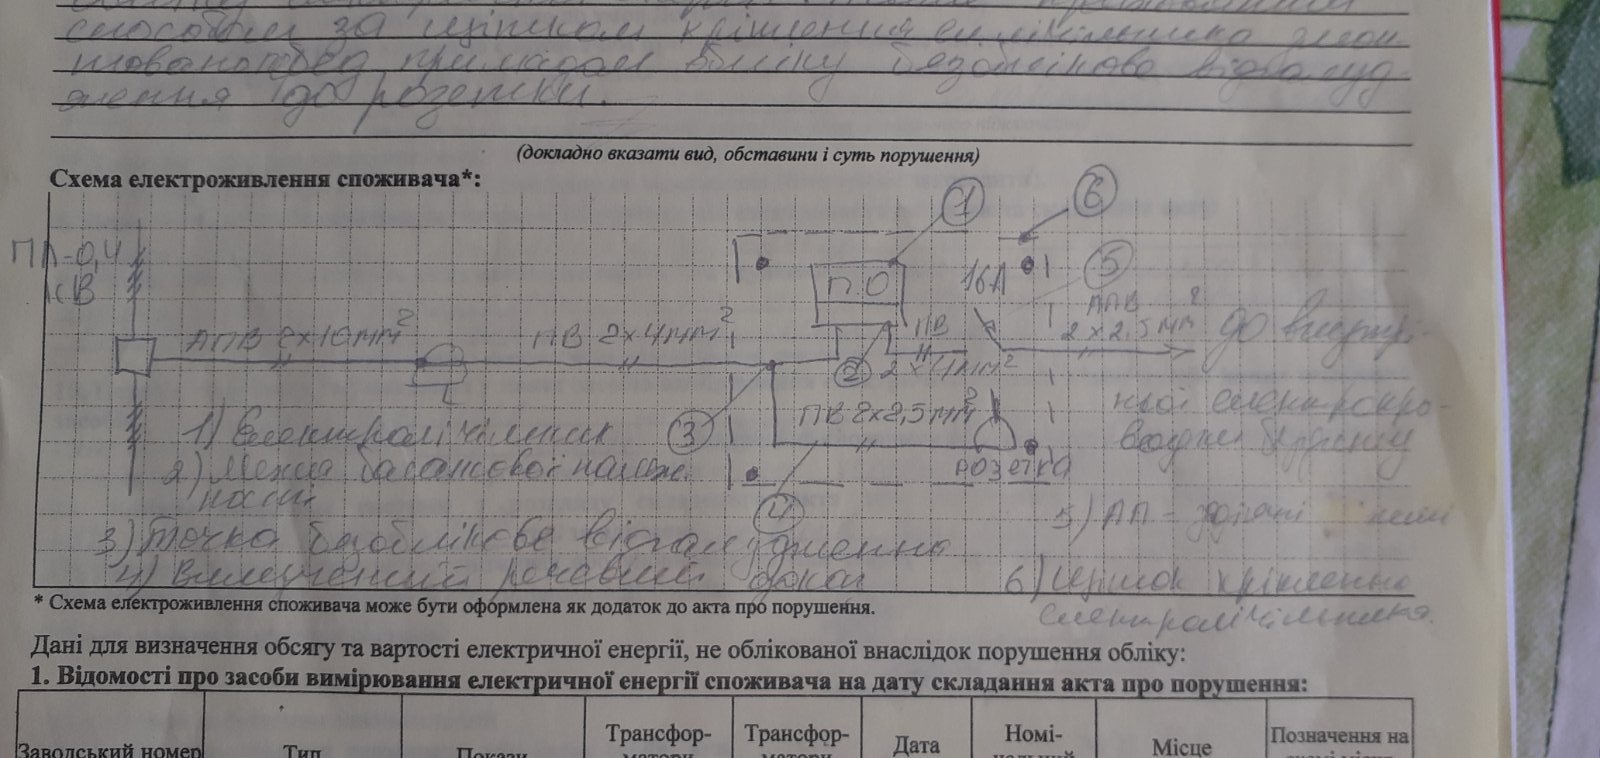 способом за щитком кріплення електролічильника змон
товано перед приладом обліку безоблікове відгалуд
ження до розетки.
(докладно вказати вид, обставини і суть порушення)
Схема електроживлення споживача*:
1
6
ПЛ-0,4
кВ
П.О
16А
5
АПВ
2х2,5мм²
до внутрі-
АПВ 2х16мм²
ПВ 2х4мм²
ПВ
2х4мм²
2
ПВ 2х2,5мм²
3
ньої електропро-
водки будинку
розетка
1) Електролічильник
2) Межа балансової належ.
ності
4
3) Точка безоблікове відгалудження
4) Вилучений речовий доказ
5) АП-
6) Щиток кріплення
електролічильника.
* Схема електроживлення споживача може бути оформлена як додаток до акта про порушення.
Дані для визначення обсягу та вартості електричної енергії, не облікованої внаслідок порушення обліку:
1. Відомості про засоби вимірювання електричної енергії споживача на дату складання акта про порушення:
Заводський номер
Тип
Покази
Трансфор-
матори
Трансфор-
матори
Дата
Номі-
нальний
Місце
Позначення на